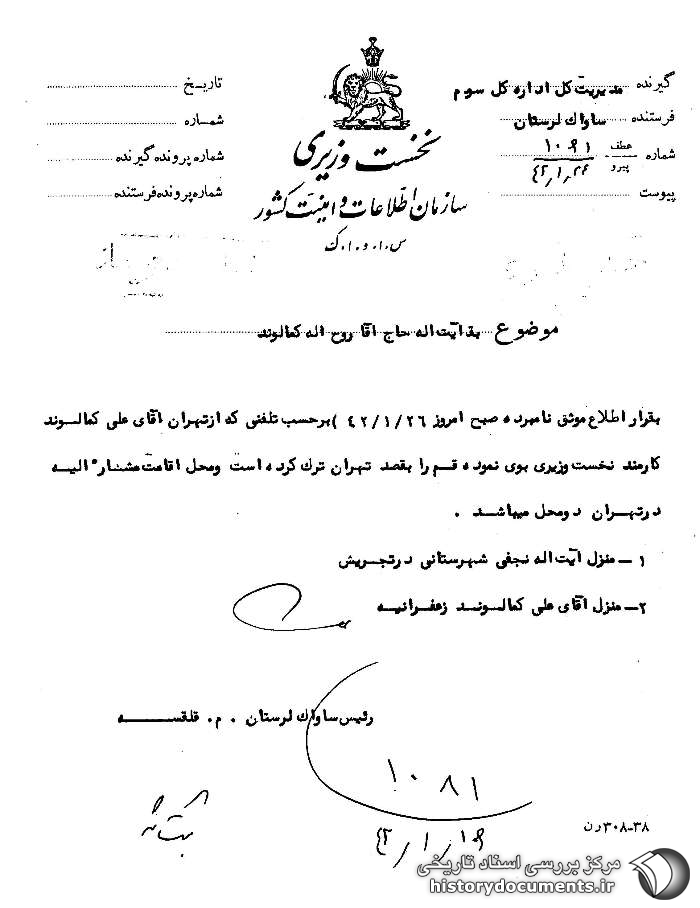 گیرنده مدیریت کل اداره کل سوم
فرستنده ساواک لرستان
شماره عطف پیرو ۱۰۸۱
۴۲/۱/۲۶
پیوست
تاریخ
شماره
شماره پرونده گیرنده
شماره پرونده فرستنده
نخست وزیری
سازمان اطلاعات و امنیت کشور
س.ا.و.ا.ک
موضوع آیت اله حاج آقا روح اله کمالوند
بقرار اطلاع موثق نامبرده صبح امروز ۴۲/۱/۲۶ )برحسب تلفنی که از تهران آقای علی کمالوند
کارمند نخست وزیری بوی نموده قم را بقصد تهران ترک کرده است ومحل اقامت مشارالیه
در تهران دومحل میباشد .
۱ – منزل آیت اله نجفی شهرستانی در تجریش
۲– منزل آقای علی کمالوند زعفرانیه
رئیس ساواک لرستان . م. قلقسه
۱۰۸۱
۳۸-۳۰۸ رن
مرکز بررسی اسناد تاریخی
historydocuments.ir